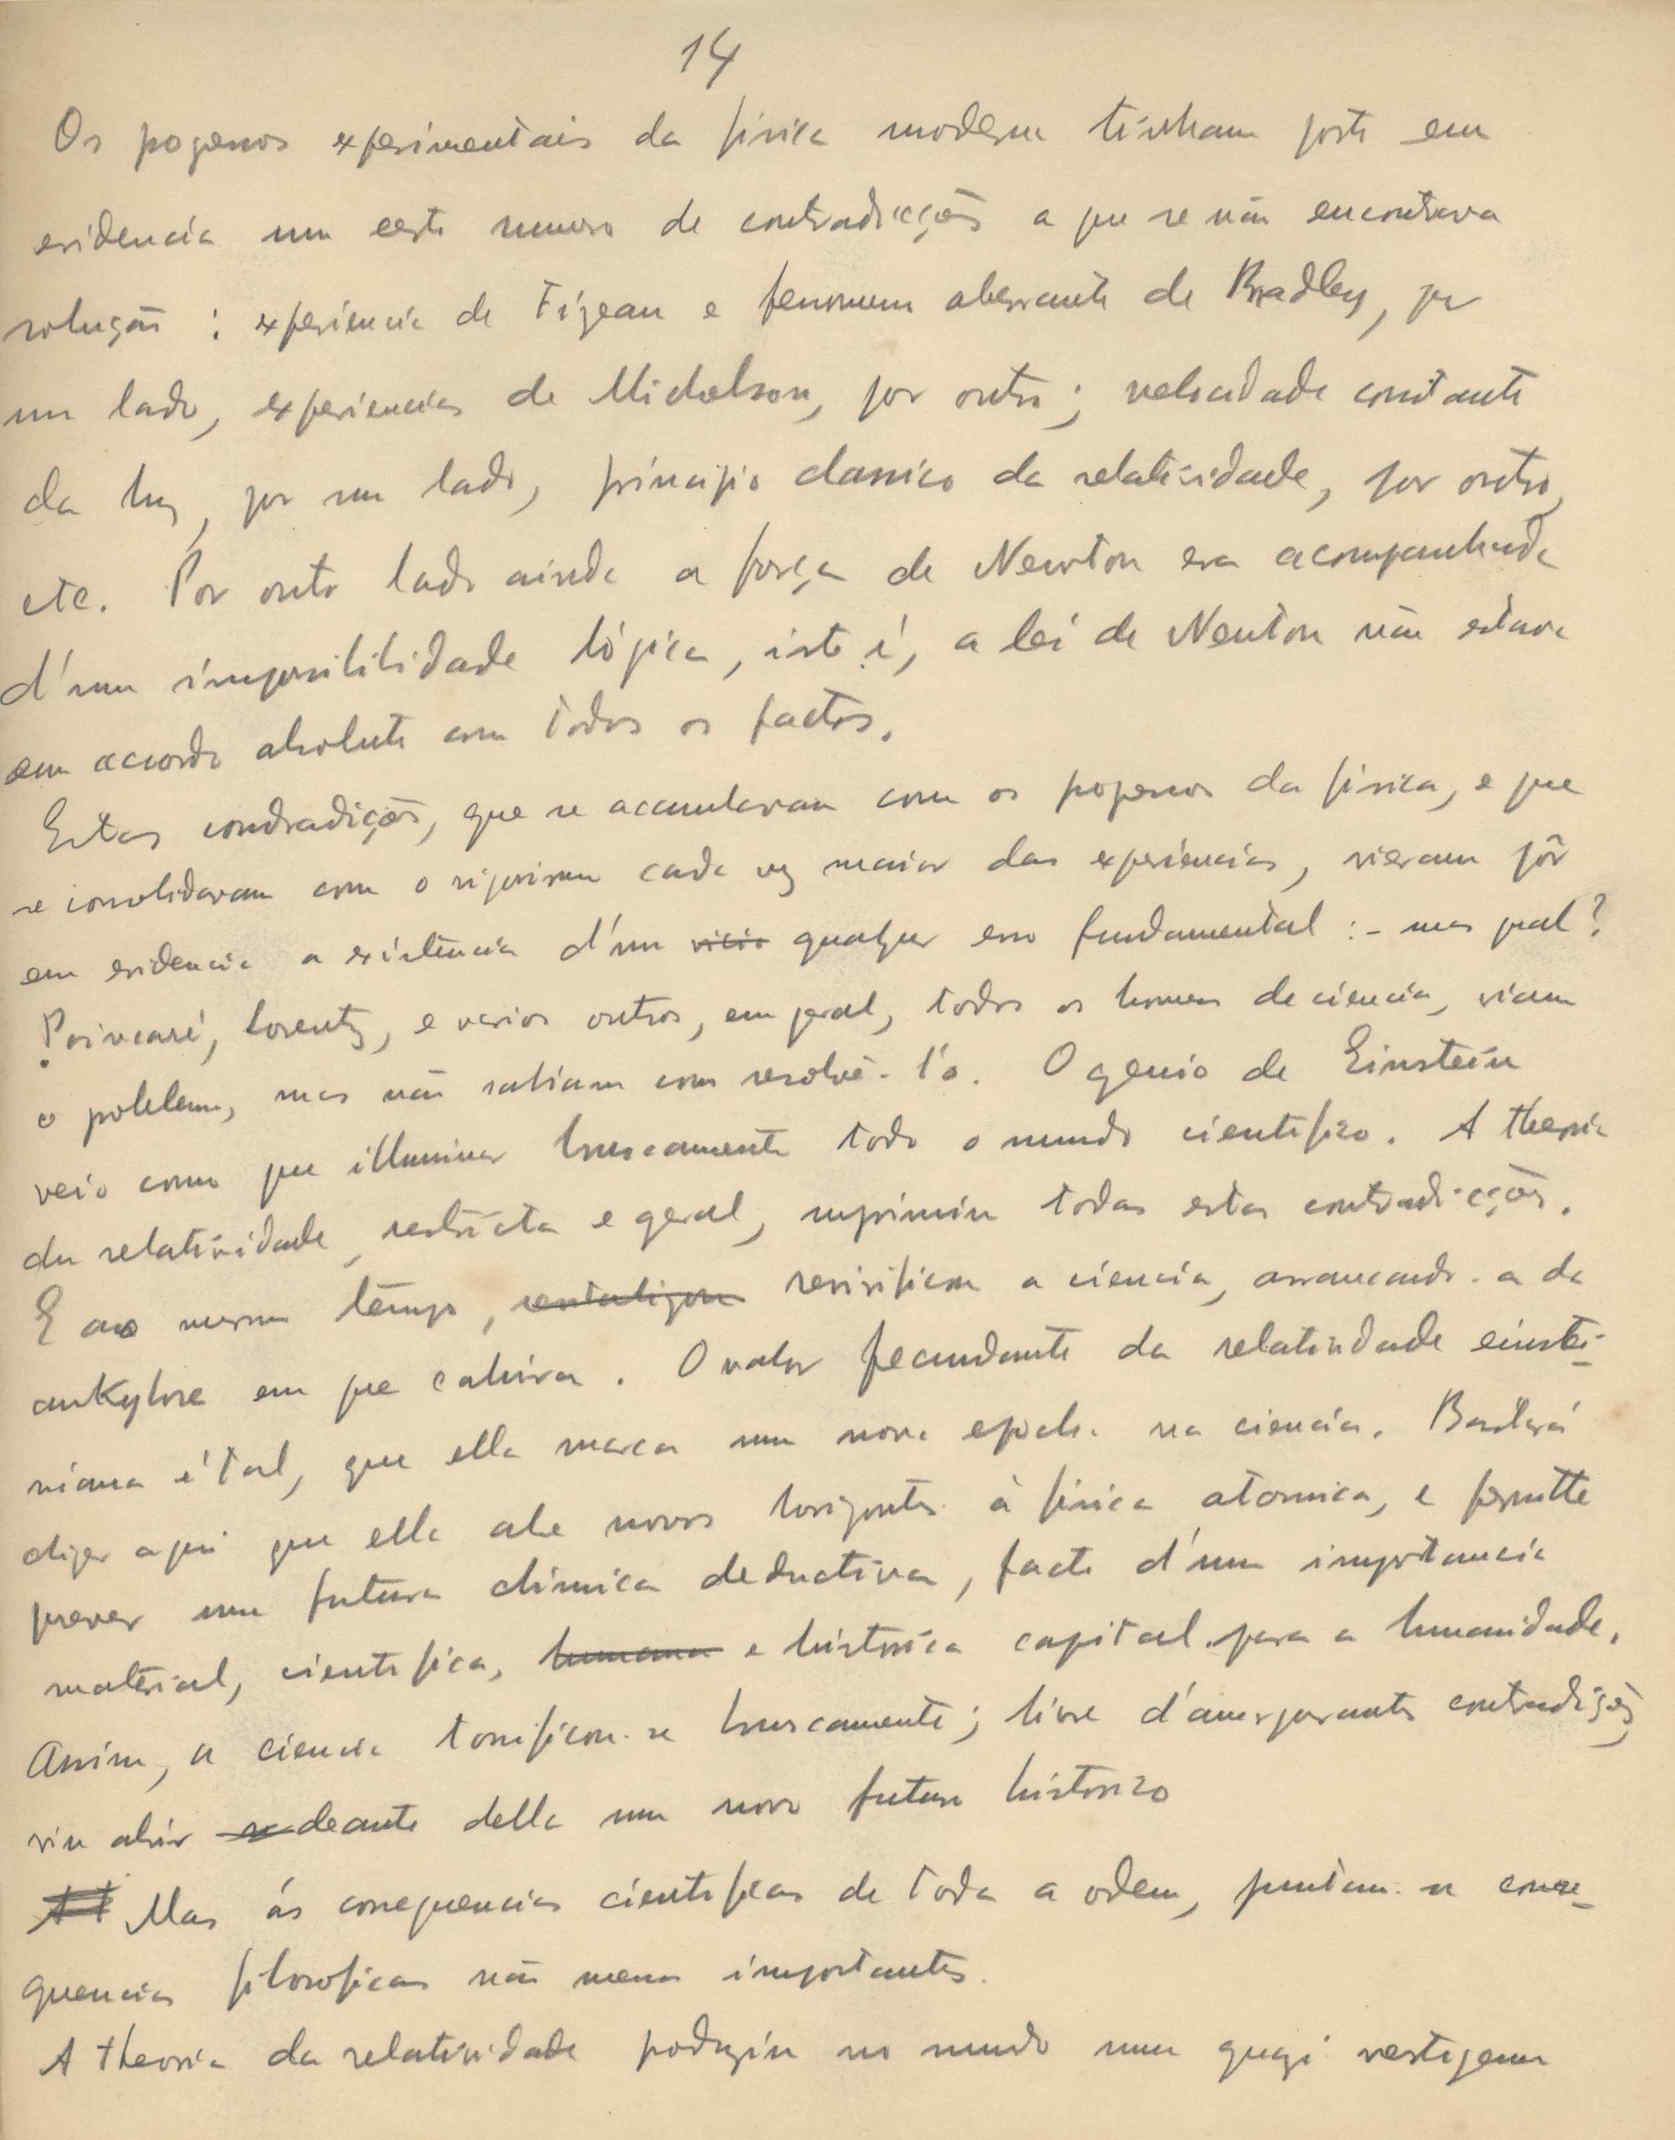 14
Os progressos experimentais da física moderna tinham posto em
evidencia um certo numero de contradicções a que se não encontrava
solução : experiencia de Fizeau e fenomeno aberrante de Bradley, por
um lado, experiencias de Michelson, por outro; velocidade constante
da luz, por um lado, principio classico da relatividade, por outro,
etc. Por outro lado ainda a força de Newton era acompanhada
d'uma impossibilidade lógica, isto é, a lei de Newton não estava
em accordo absoluto com todos os factos.
Estas contradições, que se accumularam com os progressos da física, e que
se consolidaram com o rigorismo cada vez maior das experiencias, vieram pôr
em evidencia a existencia d'um vicio qualquer erro fundamental : - mas qual?
Poincaré, Lorentz, e varios outros, em geral, todos os homens de ciencia, viam
o problema, mas não sabiam como resolvê-l'o. O genio de Einstein
veio como que illuminar bruscamente todo o mundo cientifico. A theoria
da relatividade, restricta e geral, suprimiu todas estas contradicções.
E ao mesmo tempo, revitalizou revivificou a ciencia, arrancando-a da
ankylose em que cahira. O valor fecundante da relatividade einstei-
niana é tal, que ella marca uma nova epocha na ciencia. Bastará
dizer aqui que ella abre novos horizontes à física atomica, e permitte
prever uma futura chimica deductiva, facto d'uma importancia
material, cientifica, humana e historica capital para a humanidade.
Assim, a ciencia tonificou-se bruscamente; livre d'amargurantes contradições,
viu abrir se deante della um novo futuro historico
Mas ás consequencias cientificas de toda a ordem, juntam-se conse-
quencias filosoficas não menos importantes.
A theoria da relatividade produziu no mundo uma quazi vertigem